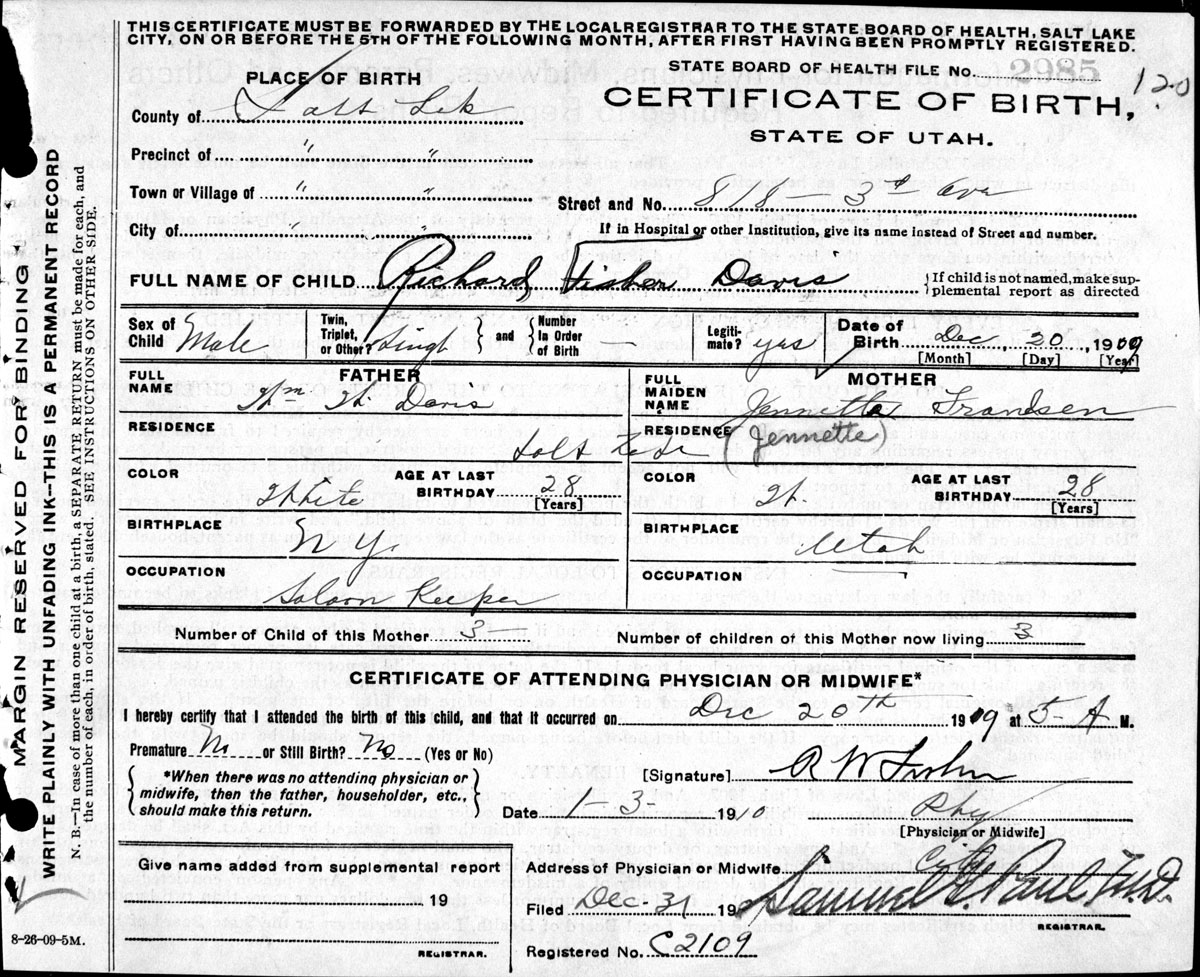 THIS CERTIFICATE MUST BE FORWARDED BY THE LOCAL REGISTRAR TO THE STATE BOARD OF HEALTH, SALT LAKE
CITY, ON OR BEFORE THE 5TH OF THE FOLLOWING MONTH, AFTER FIRST HAVING BEEN PROMPTLY REGISTERED.
STATE BOARD OF HEALTH FILE No. 2985 120
PLACE OF BIRTH
CERTIFICATE OF BIRTH,
STATE OF UTAH.
County of Salt Lek
Precinct of " "
Town or Village of " "
Street and No. 818 - 3d Ave
City of " "
If in Hospital or other Institution, give its name instead of Street and number.
FULL NAME OF CHILD Richard Fisher Davis { If child is not named, make supplemental report as directed
Sex of Child Male Twin, Triplet, or Other? Singl and Number In Order of Birth Legitimate? yes Date of Birth Dec. 20 1909
[Month] [Day] [Year]
FATHER
FULL NAME Wm W. Davis
MOTHER
FULL MAIDEN NAME Jennetta Frandsen
(Jennette)
RESIDENCE Salt Lake RESIDENCE
COLOR White AGE AT LAST BIRTHDAY 28 [Years]
COLOR W. AGE AT LAST BIRTHDAY 28 [Years]
BIRTHPLACE N Y.
BIRTHPLACE Utah
OCCUPATION Saloon Keeper
OCCUPATION
Number of Child of this Mother 3 - Number of children of this Mother now living 3
CERTIFICATE OF ATTENDING PHYSICIAN OR MIDWIFE*
I hereby certify that I attended the birth of this child, and that it occurred on Dec 20th 1909 at 5-A M.
Premature No or Still Birth? No (Yes or No)
{ *When there was no attending physician or midwife, then the father, householder, etc., should make this return. }
[Signature] R W Fisher
Date 1-3- 1910 Phy
[Physician or Midwife]
Give name added from supplemental report
19
REGISTRAR.
Address of Physician or Midwife City
Filed Dec 31 190 Samuel G Paul, M.D.
REGISTRAR.
Registered No. C2109
8-26-09-5M.
MARGIN RESERVED FOR BINDING
WRITE PLAINLY WITH UNFADING INK-THIS IS A PERMANENT RECORD
N. B.-In case of more than one child at a birth, a SEPARATE RETURN must be made for each, and
the number of each, in order of birth, stated. SEE INSTRUCTIONS ON OTHER SIDE.